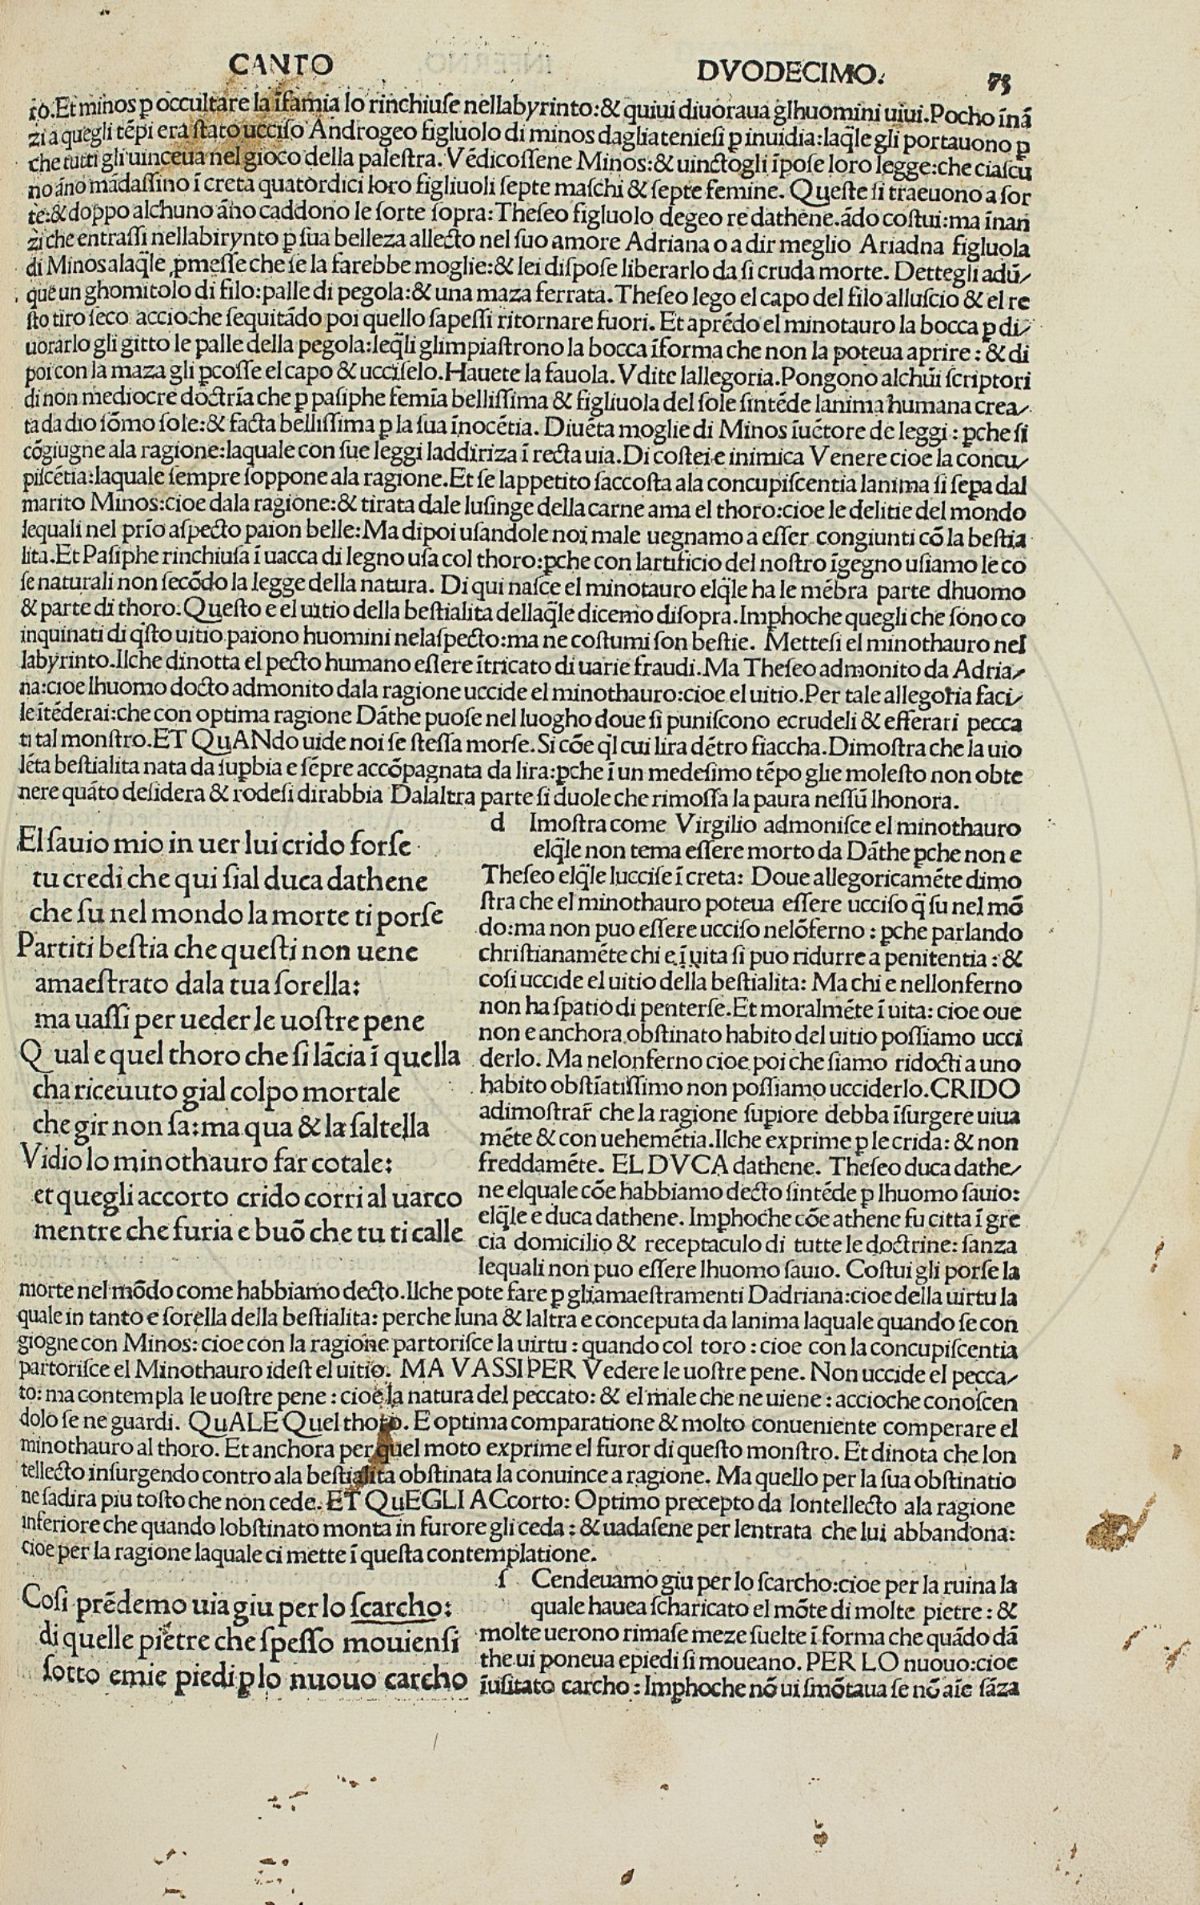 CANTO DVODECIMO. 73
ro.Et minos ꝑ occultare la ĩfamia lo rinchiuse nellabyrinto:& quiui diuoraua glhuomini uiui.Pocho ĩnã
zi a quegli tẽpi era ſtato ucciſo Androgeo figluolo di minos dagliatenieſi ꝑ inuidia:laq̃le gli portauono ꝑ
che tutti gli uinceua nel gioco della paleſtra. Vẽdicoſſene Minos:& uinctogli ĩpoſe loro legge:che ciaſcũ
no ãno mãdaſſino ĩ creta quatordici loro figliuoli ſepte maſchi & ſepte femine. Queſte ſi traeuono a ſor
te:& doppo alchuno ãno caddono le ſorte ſopra:Theſeo figluolo degeo re dathene.ãdo coſtui:ma ĩnan
zi che entraſſi nellabirynto ꝑ ſua belleza allecto nel ſuo amore Adriana o a dir meglio Ariadna figluola
di Minos alaq̃le ꝓmeſſe che ſe la farebbe moglie:& lei diſpoſe liberarlo da ſi cruda morte. Dettegli adũ/
que un ghomitolo di filo:palle di pegola:& una maza ferrata.Theſeo lego el capo del filo alluſcio & el re
ſto tiro ſeco accioche ſequitãdo poi quello ſapeſſi ritornare fuori. Et aprẽdo el minotauro la bocca ꝑ di/
uorarlo gli gitto le palle della pegola:leq̃li glimpiaſtrono la bocca ĩforma che non la poteua aprire: & di
poi con la maza gli ꝑcoſſe el capo & ucciſelo.Hauete la fauola. Vdite lallegoria.Pongono alchũi ſcriptori
di non mediocre doctrĩa che ꝑ paſiphe femĩa belliſſima & figliuola del ſole ſintẽde lanima humana crea/
ta da dio ſõmo ſole:& facta belliſſima ꝑ la ſua ĩnocẽtia. Diuẽta moglie di Minos ĩuẽtore de leggi: ꝑche ſi
cõgiugne ala ragione:laquale con ſue leggi laddiriza ĩ recta uia.Di coſtei e inimica Venere cioe la concu/
piſcẽtia:laquale ſempre ſoppone ala ragione.Et ſe lappetito ſaccoſta ala concupiſcentia lanima ſi ſeꝑa dal
marito Minos:cioe dala ragione:& tirata dale luſinge della carne ama el thoro:cioe le delitie del mondo
lequali nel prĩo aſpecto paion belle:Ma dipoi uſandole noi male uegnamo a eſſer congiunti cõ la beſtia
lita.Et Paſiphe rinchiuſa ĩ uacca di legno uſa col thoro:ꝑche con lartificio del noſtro ĩgegno uſiamo le co
ſe naturali non ſecõdo la legge della natura. Di qui naſce el minotauro elq̃le ha le mẽbra parte dhuomo
& parte di thoro.Queſto e el uitio della beſtialita dellaq̃le dicemo diſopra.Imꝑhoche quegli che ſono co
inquinati di q̃ſto uitio paiono huomini nelaſpecto:ma ne coſtumi ſon beſtie. Metteſi el minothauro nel
labyrinto.Ilche dinotta el pecto humano eſſere ĩtricato di uarie fraudi.Ma Theſeo admonito da Adria/
na:cioe lhuomo docto admonito dala ragione uccide el minothauro:cioe el uitio.Per tale allegoria faci/
le ĩtẽderai:che con optima ragione Dãthe puoſe nel luogho doue ſi puniſcono ecrudeli & efferari pecca
ti tal monſtro.ET QuANdo uide noi ſe ſteſſa morſe. Si cõe q̃l cui lira dẽtro fiaccha.Dimoſtra che la uio
lẽta beſtialita nata da ſuꝑbia e ſẽpre accõpagnata da lira:ꝑche ĩ un medeſimo tẽpo glie moleſto non obte
nere quãto deſidera & rodeſi dirabbia Dalaltra parte ſi duole che rimoſſa la paura neſſũ lhonora.
El ſauio mio in uer lui crido forſe
tu credi che qui ſial duca dathene
che ſu nel mondo la morte ti porſe
Partiti beſtia che queſti non uene
amaeſtrato dala tua ſorella:
ma uaſſi per ueder le uoſtre pene
Qual e quel thoro che ſi lãcia ĩ quella
cha riceuuto gial colpo mortale
che gir non ſa:ma qua & la ſaltella
Vidio lo minothauro far cotale:
et quegli accorto crido corri al uarco
mentre che furia e buõ che tu ti calle
d Imoſtra come Virgilio admoniſce el minothauro
elq̃le non tema eſſere morto da Dãthe ꝑche non e
Theſeo elq̃le lucciſe ĩ creta: Doue allegoricamẽte dimo
ſtra che el minothauro poteua eſſere ucciſo q̃ ſu nel mõ
do:ma non puo eſſere ucciſo nelõferno: ꝑche parlando
chriſtianamẽte chi e ĩ uita ſi puo ridurre a penitentia: &
coſi uccide el uitio della beſtialita: Ma chi e nellonferno
non ha ſpatio di penterſe.Et moralmẽte ĩ uita: cioe oue
non e anchora obſtinato habito del uitio poſſiamo ucci
derlo. Ma nelonferno cioe poi che ſiamo ridocti a uno
habito obſtĩatiſſimo non poſſiamo ucciderlo.CRIDO
adimoſtrar̃ che la ragione ſuꝑiore debba ĩſurgere uiua
mẽte & con uehemẽtia.Ilche exprime ꝑ le crida: & non
freddamẽte. EL DVCA dathene. Theſeo duca dathe/
ne elquale cõe habbiamo decto ſintẽde ꝑ lhuomo ſauio:
elq̃le e duca dathene. Imꝑhoche cõe athene fu citta ĩ gre
cia domicilio & receptaculo di tutte le doctrine: ſanza
lequali non puo eſſere lhuomo ſauio. Coſtui gli porſe la
morte nel mõdo come habbiamo decto.Ilche pote fare ꝑ gliamaeſtramenti Dadriana:cioe della uirtu la
quale in tanto e ſorella della beſtialita: perche luna & laltra e conceputa da lanima laquale quando ſe con
giogne con Minos: cioe con la ragione partoriſce la uirtu: quando col toro: cioe con la concupiſcentia
partoriſce el Minothauro ideſt el uitio. MA VASSI PER Vedere le uoſtre pene. Non uccide el pecca/
to: ma contempla le uoſtre pene: cioe la natura del peccato: & el male che ne uiene: accioche conoſcen
dolo ſe ne guardi. QuALE Quel thoro. E optima comparatione & molto conueniente comperare el
minothauro al thoro. Et anchora per quel moto exprime el furor di queſto monſtro. Et dinota che lon
tellecto inſurgendo contro ala beſtialita obſtinata la conuince a ragione. Ma quello per la ſua obſtinatio
ne ſadira piu toſto che non cede. ET QuEGLI ACcorto: Optimo precepto da lontellecto ala ragione
inferiore che quando lobſtinato monta in furore gli ceda: & uadaſene per lentrata che lui abbandona:
cioe per la ragione laquale ci mette ĩ queſta contemplatione.
Coſi prẽdemo uia giu per lo ſcarcho:
di quelle pietre che ſpeſſo mouienſi
ſotto emie piedi ꝑ lo nuouo carcho
ſ Cendeuamo giu per lo ſcarcho:cioe per la ruina la
quale hauea ſcharicato el mõte di molte pietre: &
molte uerono rimaſe meze ſuelte ĩ forma che quãdo dã
the ui poneua epiedi ſi moueano. PER LO nuouo:cioe
ĩuſitato carcho: Imꝑhoche nõ ui ſmõtaua ſe nõ aĩe ſãza